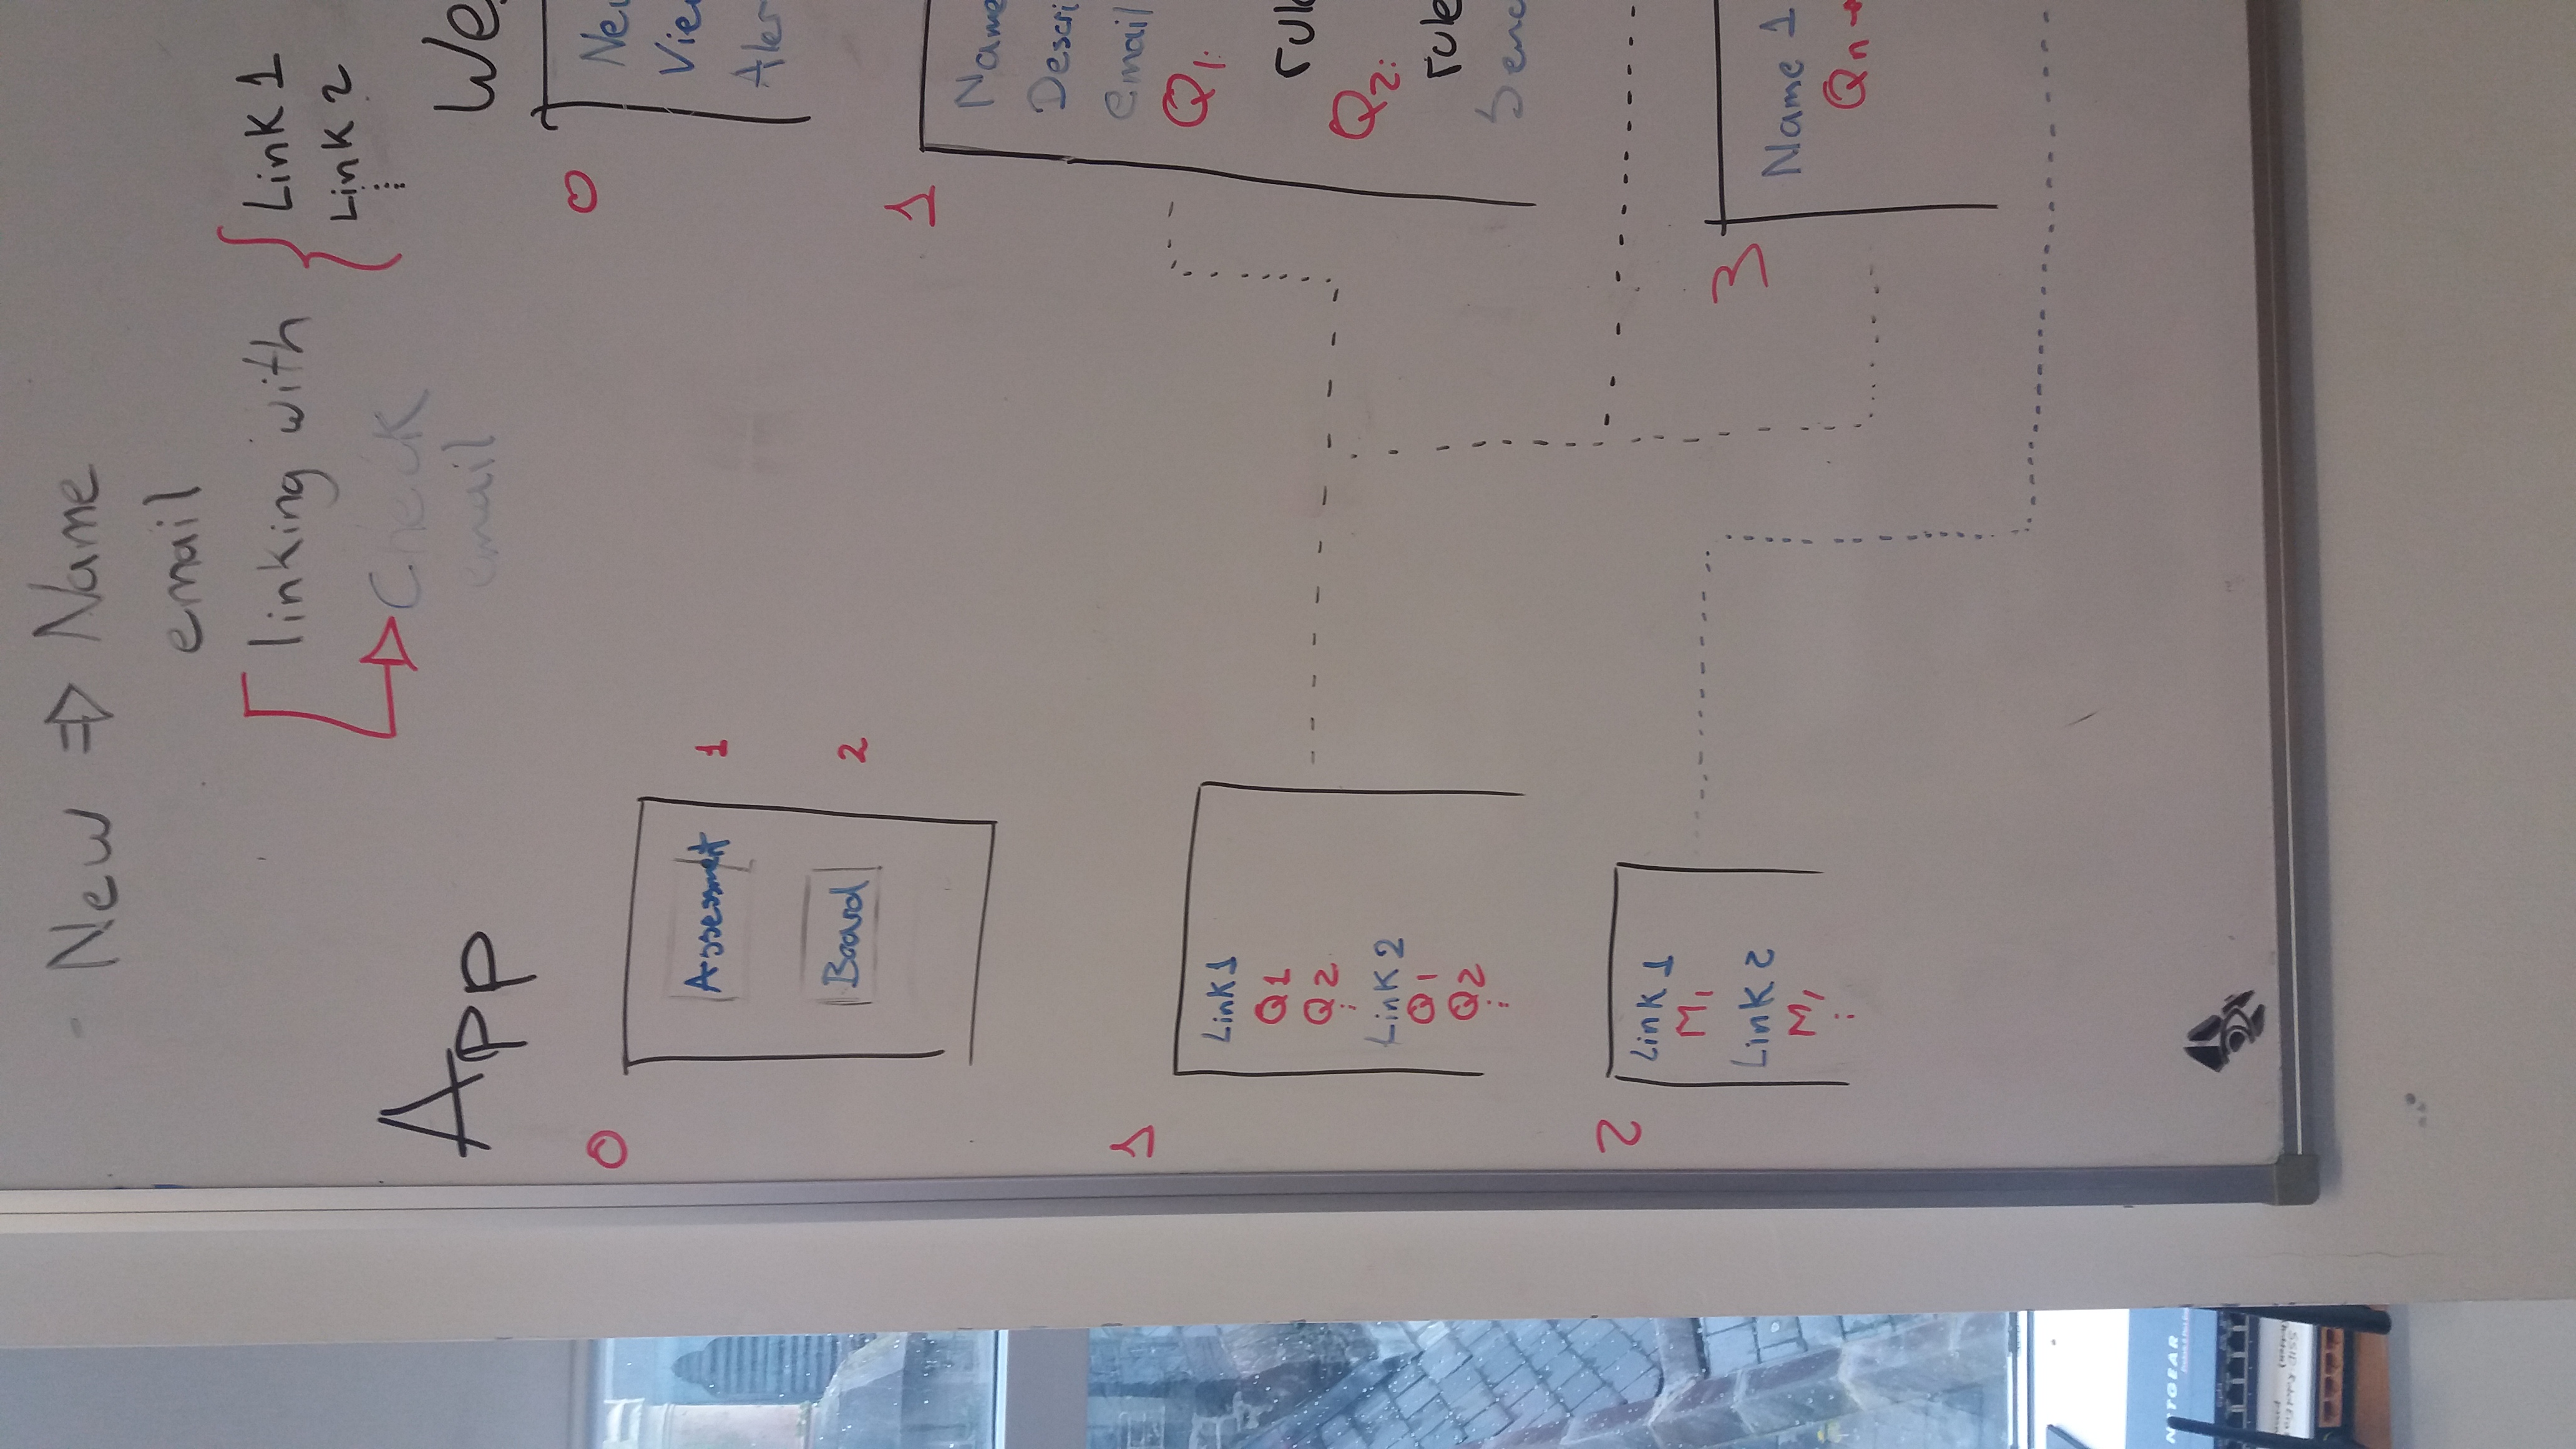 New ⇒ Name
email
linking with { Link 1
Link 2
Check
email
App
0
Assessment 1
Board 2
1
Link 1
Q1
Q2
Link 2
Q1
Q2
2
Link 1
M1
Link 2
M1
We
0
Ne
Vie
Aler
1
Name
Descri
email
Q1:
rul
Q2:
rule
Send
3
Name 1
Qn →
NETGEAR